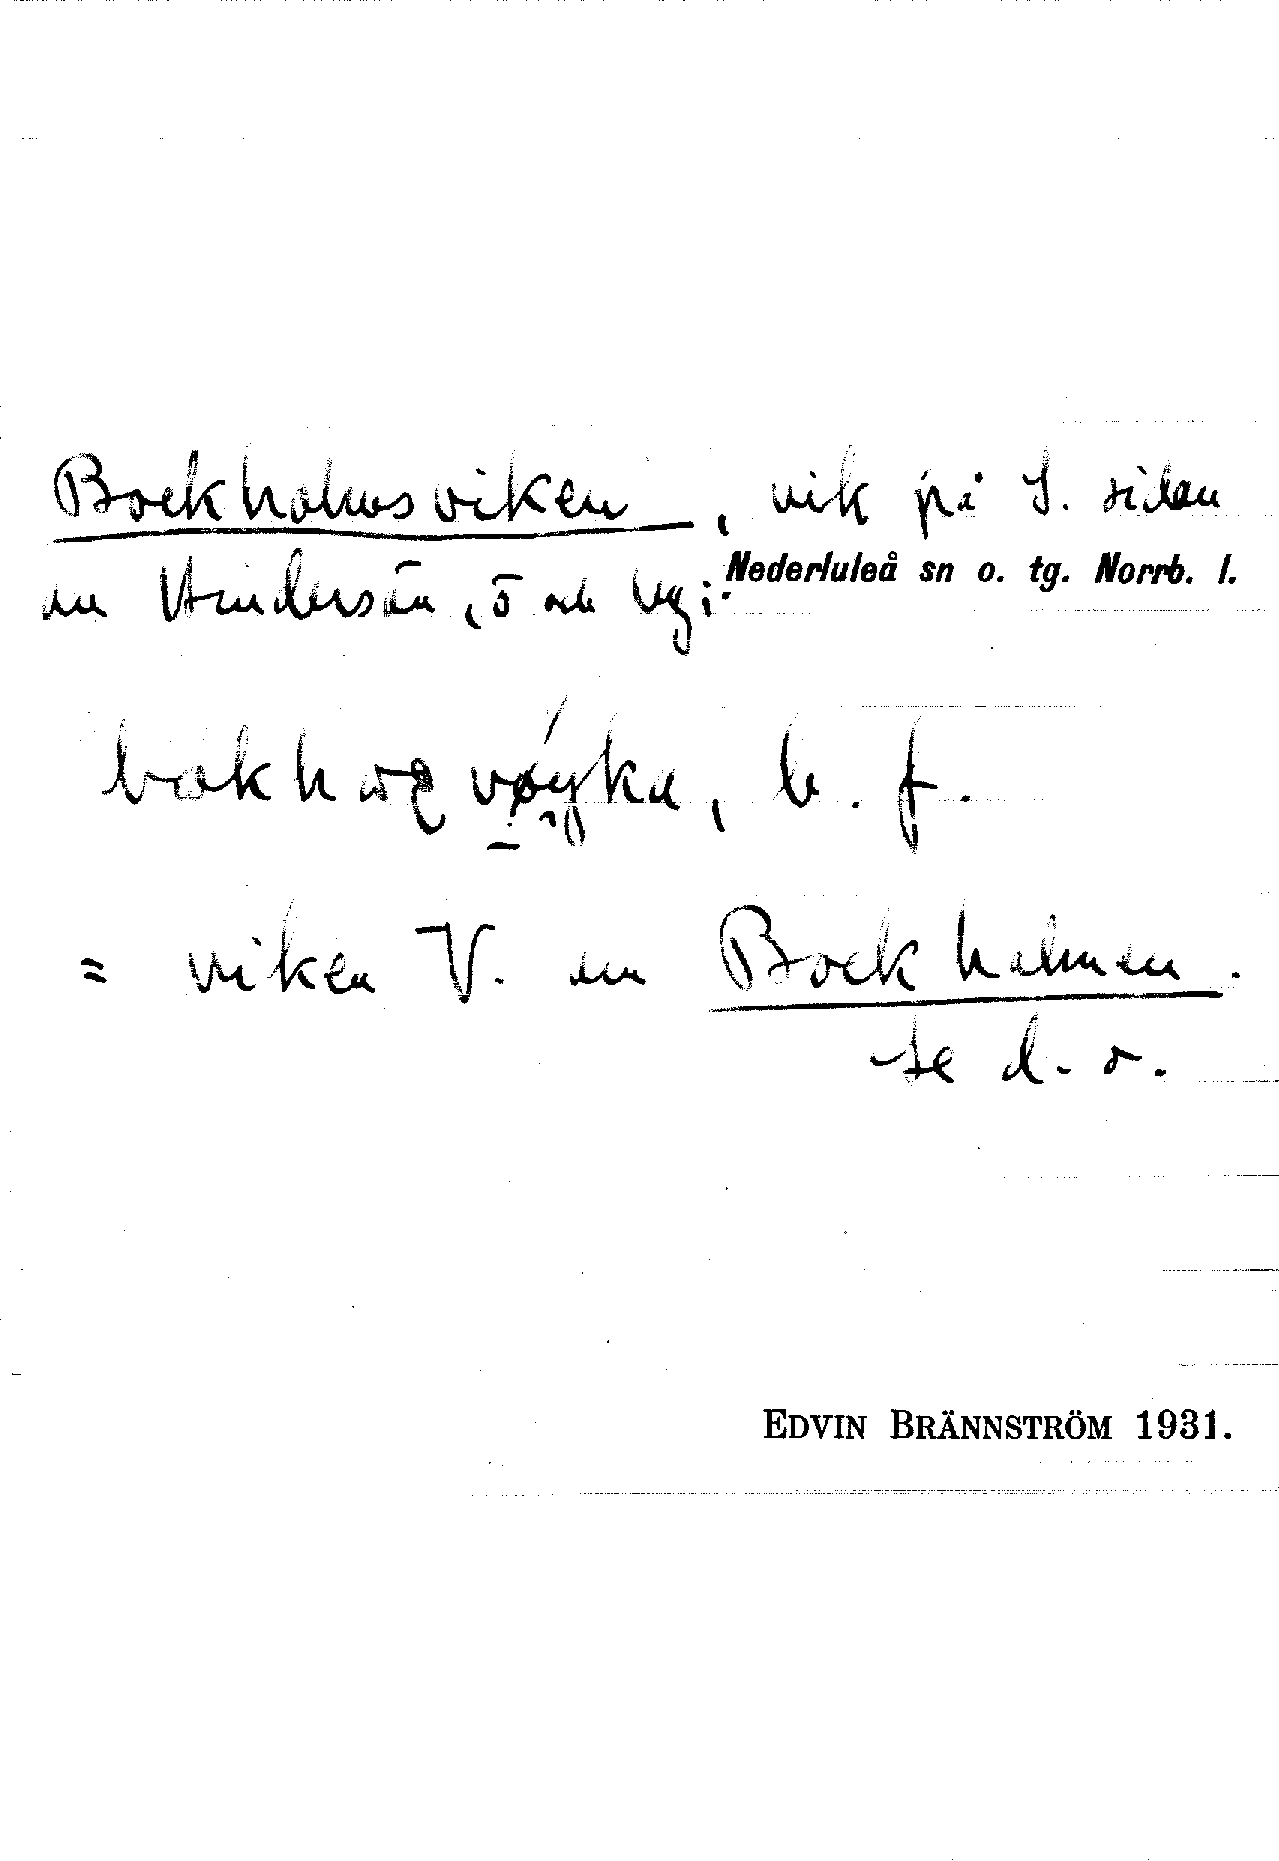 Bockholmsviken, vik på S. sidan
av Andersön, ö och by i
Nederluleå sn o. tg. Norrb. l.
b. f.
= viken V. om Bockholmen.
se d. o.
EDVIN BRÄNNSTRÖM 1931.